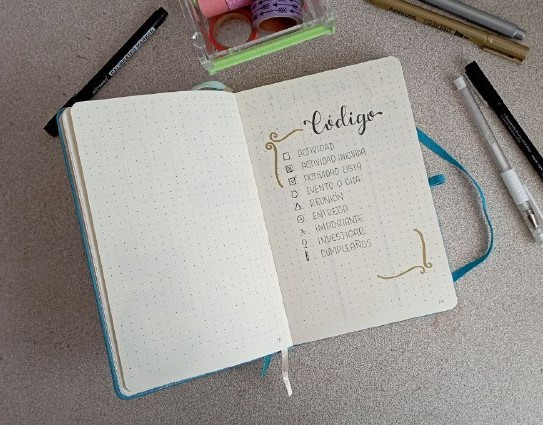 Código
ACTIVIDAD
ACTIVIDAD INICIADA
ACTIVIDAD LISTA
EVENTO O CITA
REUNIÓN
ENTREGA
IMPORTANTE
INVESTIGAR
CUMPLEAÑOS